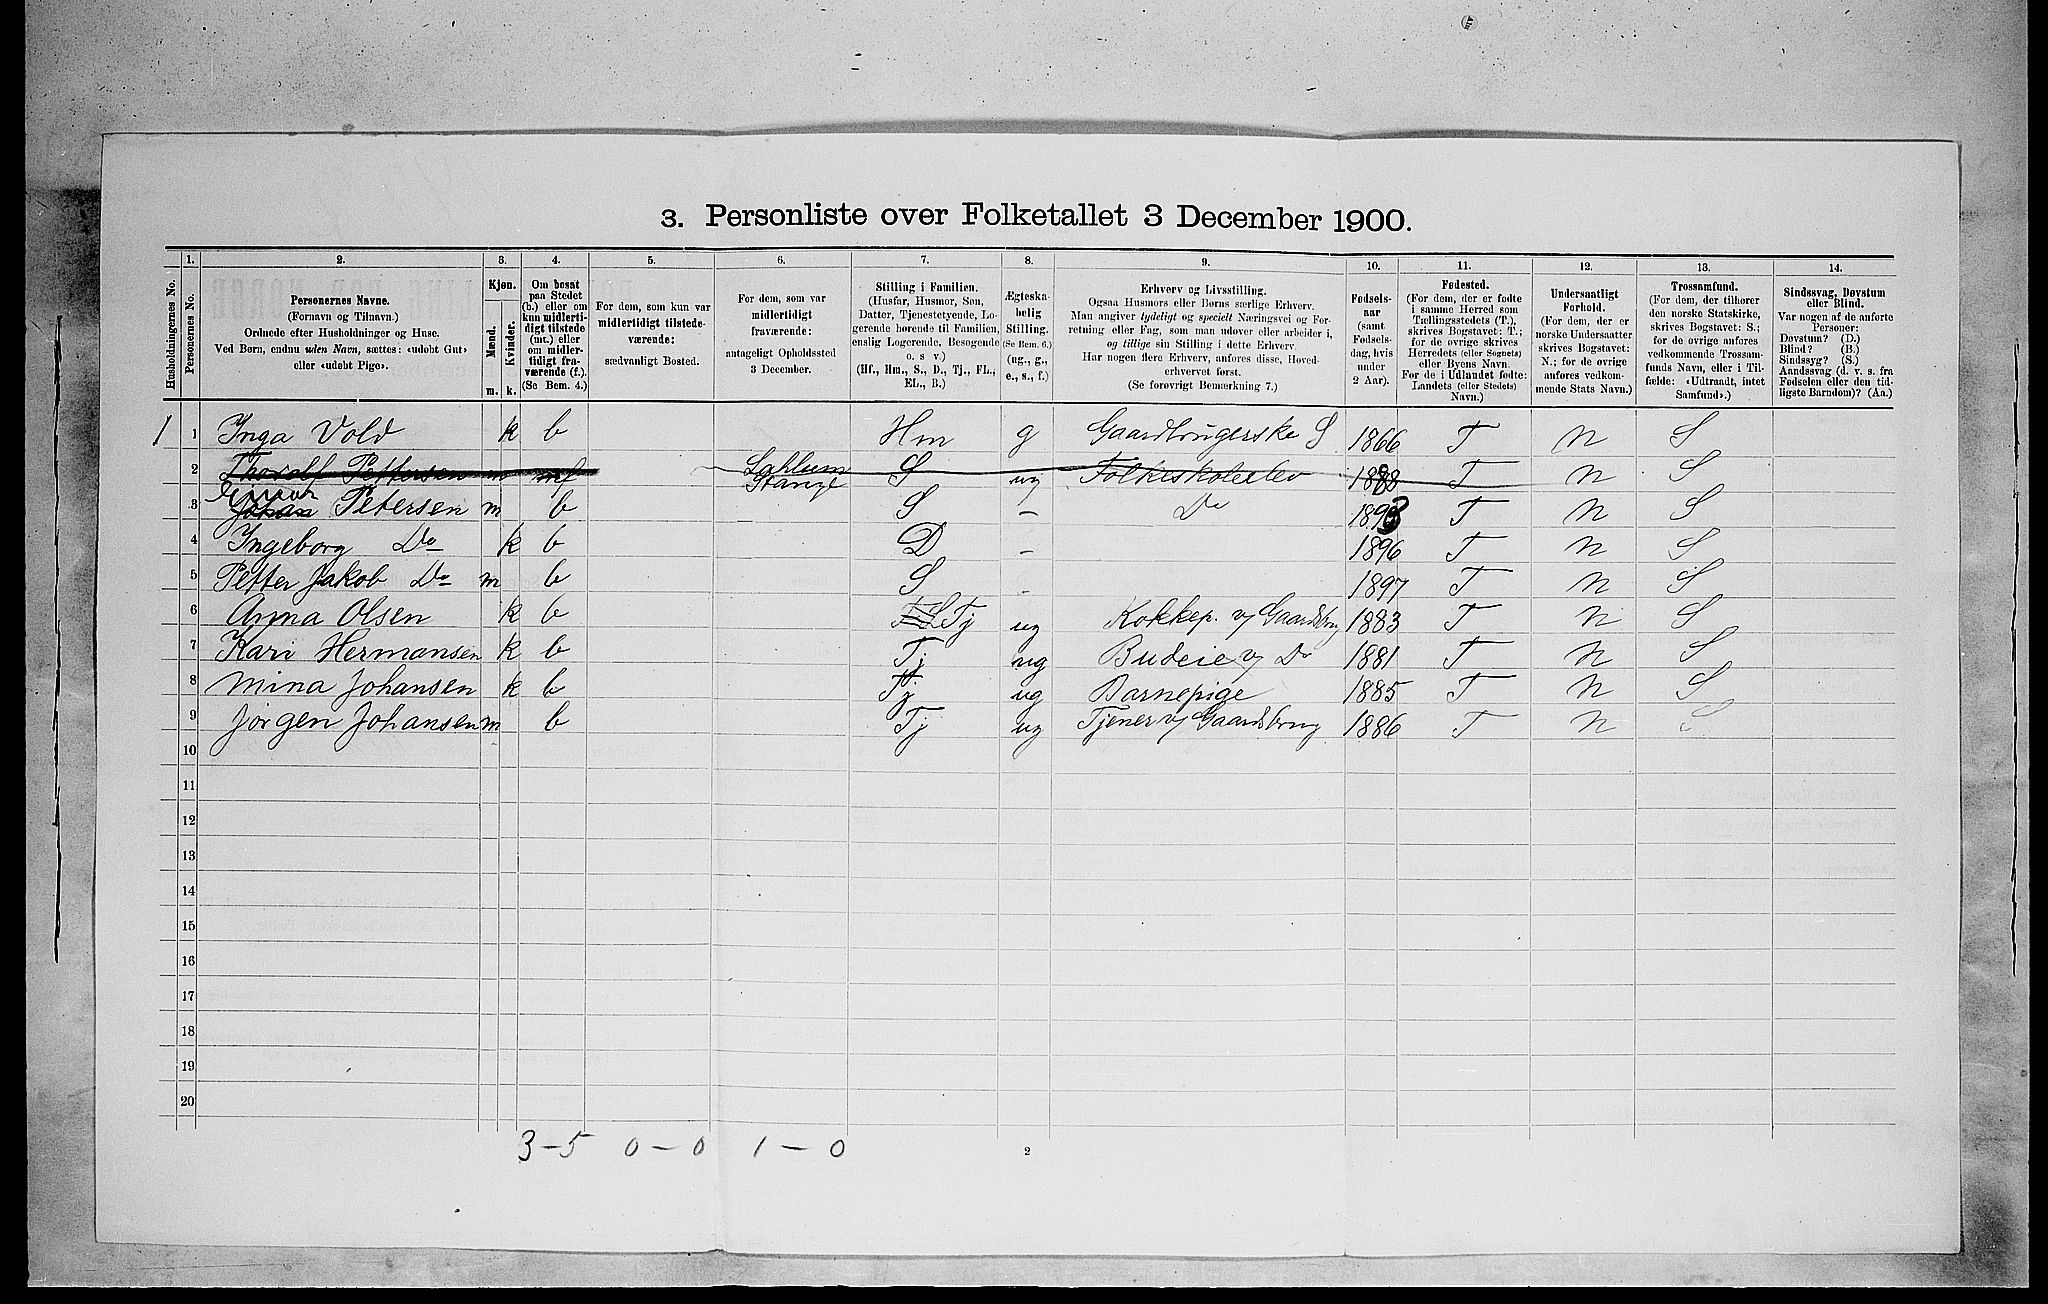 3. Personliste over Folketallet 3 December 1900.
Husholdningernes No.
1.
Personernes No.
2.
Personernes Navne.
(Fornavn og Tilnavn.)
Ordnede efter Husholdninger og Huse.
Ved Børn, endnu uden Navn, sættes: «udøbt Gut»
eller «udøbt Pige».
3.
Kjøn.
Mænd.
Kvinder.
m. k.
4.
Om bosat
paa Stedet
(b.) eller om
kun midlerti-
digt tilstede
(mt.) eller
om midler-
tidigt fra-
værende (f.).
(Se Bem. 4.)
5.
For dem, som kun var
midlertidigt tilstede-
værende:
sædvanligt Bosted.
6.
For dem, som var
midlertidigt
fraværende:
antageligt Opholdssted
3 December.
7.
Stilling i Familien.
(Husfar, Husmor, Søn,
Datter, Tjenestetyende, Lo-
gerende hørende til Familien,
enslig Logerende, Besøgende
o. s v.)
(Hf., Hm., S., D., Tj., FL.,
EL., B.)
8.
Ægteska-
belig
Stilling.
(Se Bem. 6.)
(ug., g.,
e., s., f.)
9.
Erhverv og Livsstilling.
Ogsaa Husmors eller Børns særlige Erhverv.
Man angiver tydeligt og specielt Næringsvei og For-
retning eller Fag, som man udøver eller arbeider i,
og tillige sin Stilling i dette Erhverv.
Har nogen flere Erhverv, anføres disse, Hoved-
erhvervet først.
(Se forøvrigt Bemærkning 7.)
10.
Fødsels-
aar
(samt
Fødsels-
dag, hvis
under
2 Aar).
11.
Fødested.
(For dem, der er fødte
i samme Herred som
Tællingsstedets (T.),
skrives Bogstavet: T.;
for de øvrige skrives
Herredets (eller Sognets)
eller Byens Navn.
For de i Udlandet fødte:
Landets (eller Stedets)
Navn.)
12.
Undersaatligt
Forhold.
(For dem, der er
norske Undersaatter
skrives Bogstavet:
N.; for de øvrige
anføres vedkom-
mende Stats Navn.)
13.
Trossamfund.
(For dem, der tilhører
den norske Statskirke,
skrives Bogstavet: S.;
for de øvrige anføres
vedkommende Trossam-
funds Navn, eller i Til-
fælde: «Udtraadt, intet
Samfund».)
14.
Sindssvag, Døvstum
eller Blind.
Var nogen af de anførte
Personer:
Døvstum? (D.)
Blind? (B.)
Sindssyg? (S.)
Aandssvag (d. v. s. fra
Fødselen eller den tid-
ligste Barndom)? (Aa.)
1 1 Inga Vold k b Hm g Gaardbrugerske S 1866 T N S
2 Thorolf Pettersen m mf Sahlum Stange S ug Folkeskoleelev 1888 T N S
Einar
3 Johan Petersen m b S – Do 1893 T N S
4 Ingeborg Do k b D – 1896 T N S
5 Petter Jakob Do m b S - 1897 T N S
6 Anna Olsen k b Tj ug Kokkep. v/ Gaardsbrug 1883 T N S
7 Kari Hermansen k b Tj ug Budeie v/ Do 1881 T N S
8 Mina Johansen k b Tj ug Barnepige 1885 T N S
9 Jørgen Johansen m b Tj ug Tjener v/ Gaardsbrug 1886 T N S
10
11
12
13
14
15
16
17
18
19
20
3 – 5 0 – 0 1 – 0
2